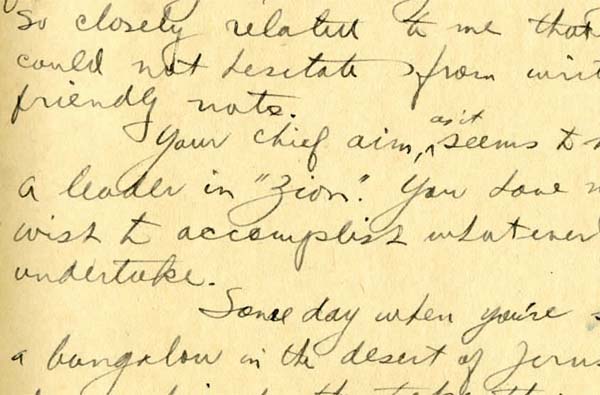 So closely related to me that
could not hesitate from writ
friendly note.
Your chief aim, as it seems to
a leader in "Zion". You have
wish to accomplish whatever
undertake.
Some day when you're
a bungalow in the desert of Jerus